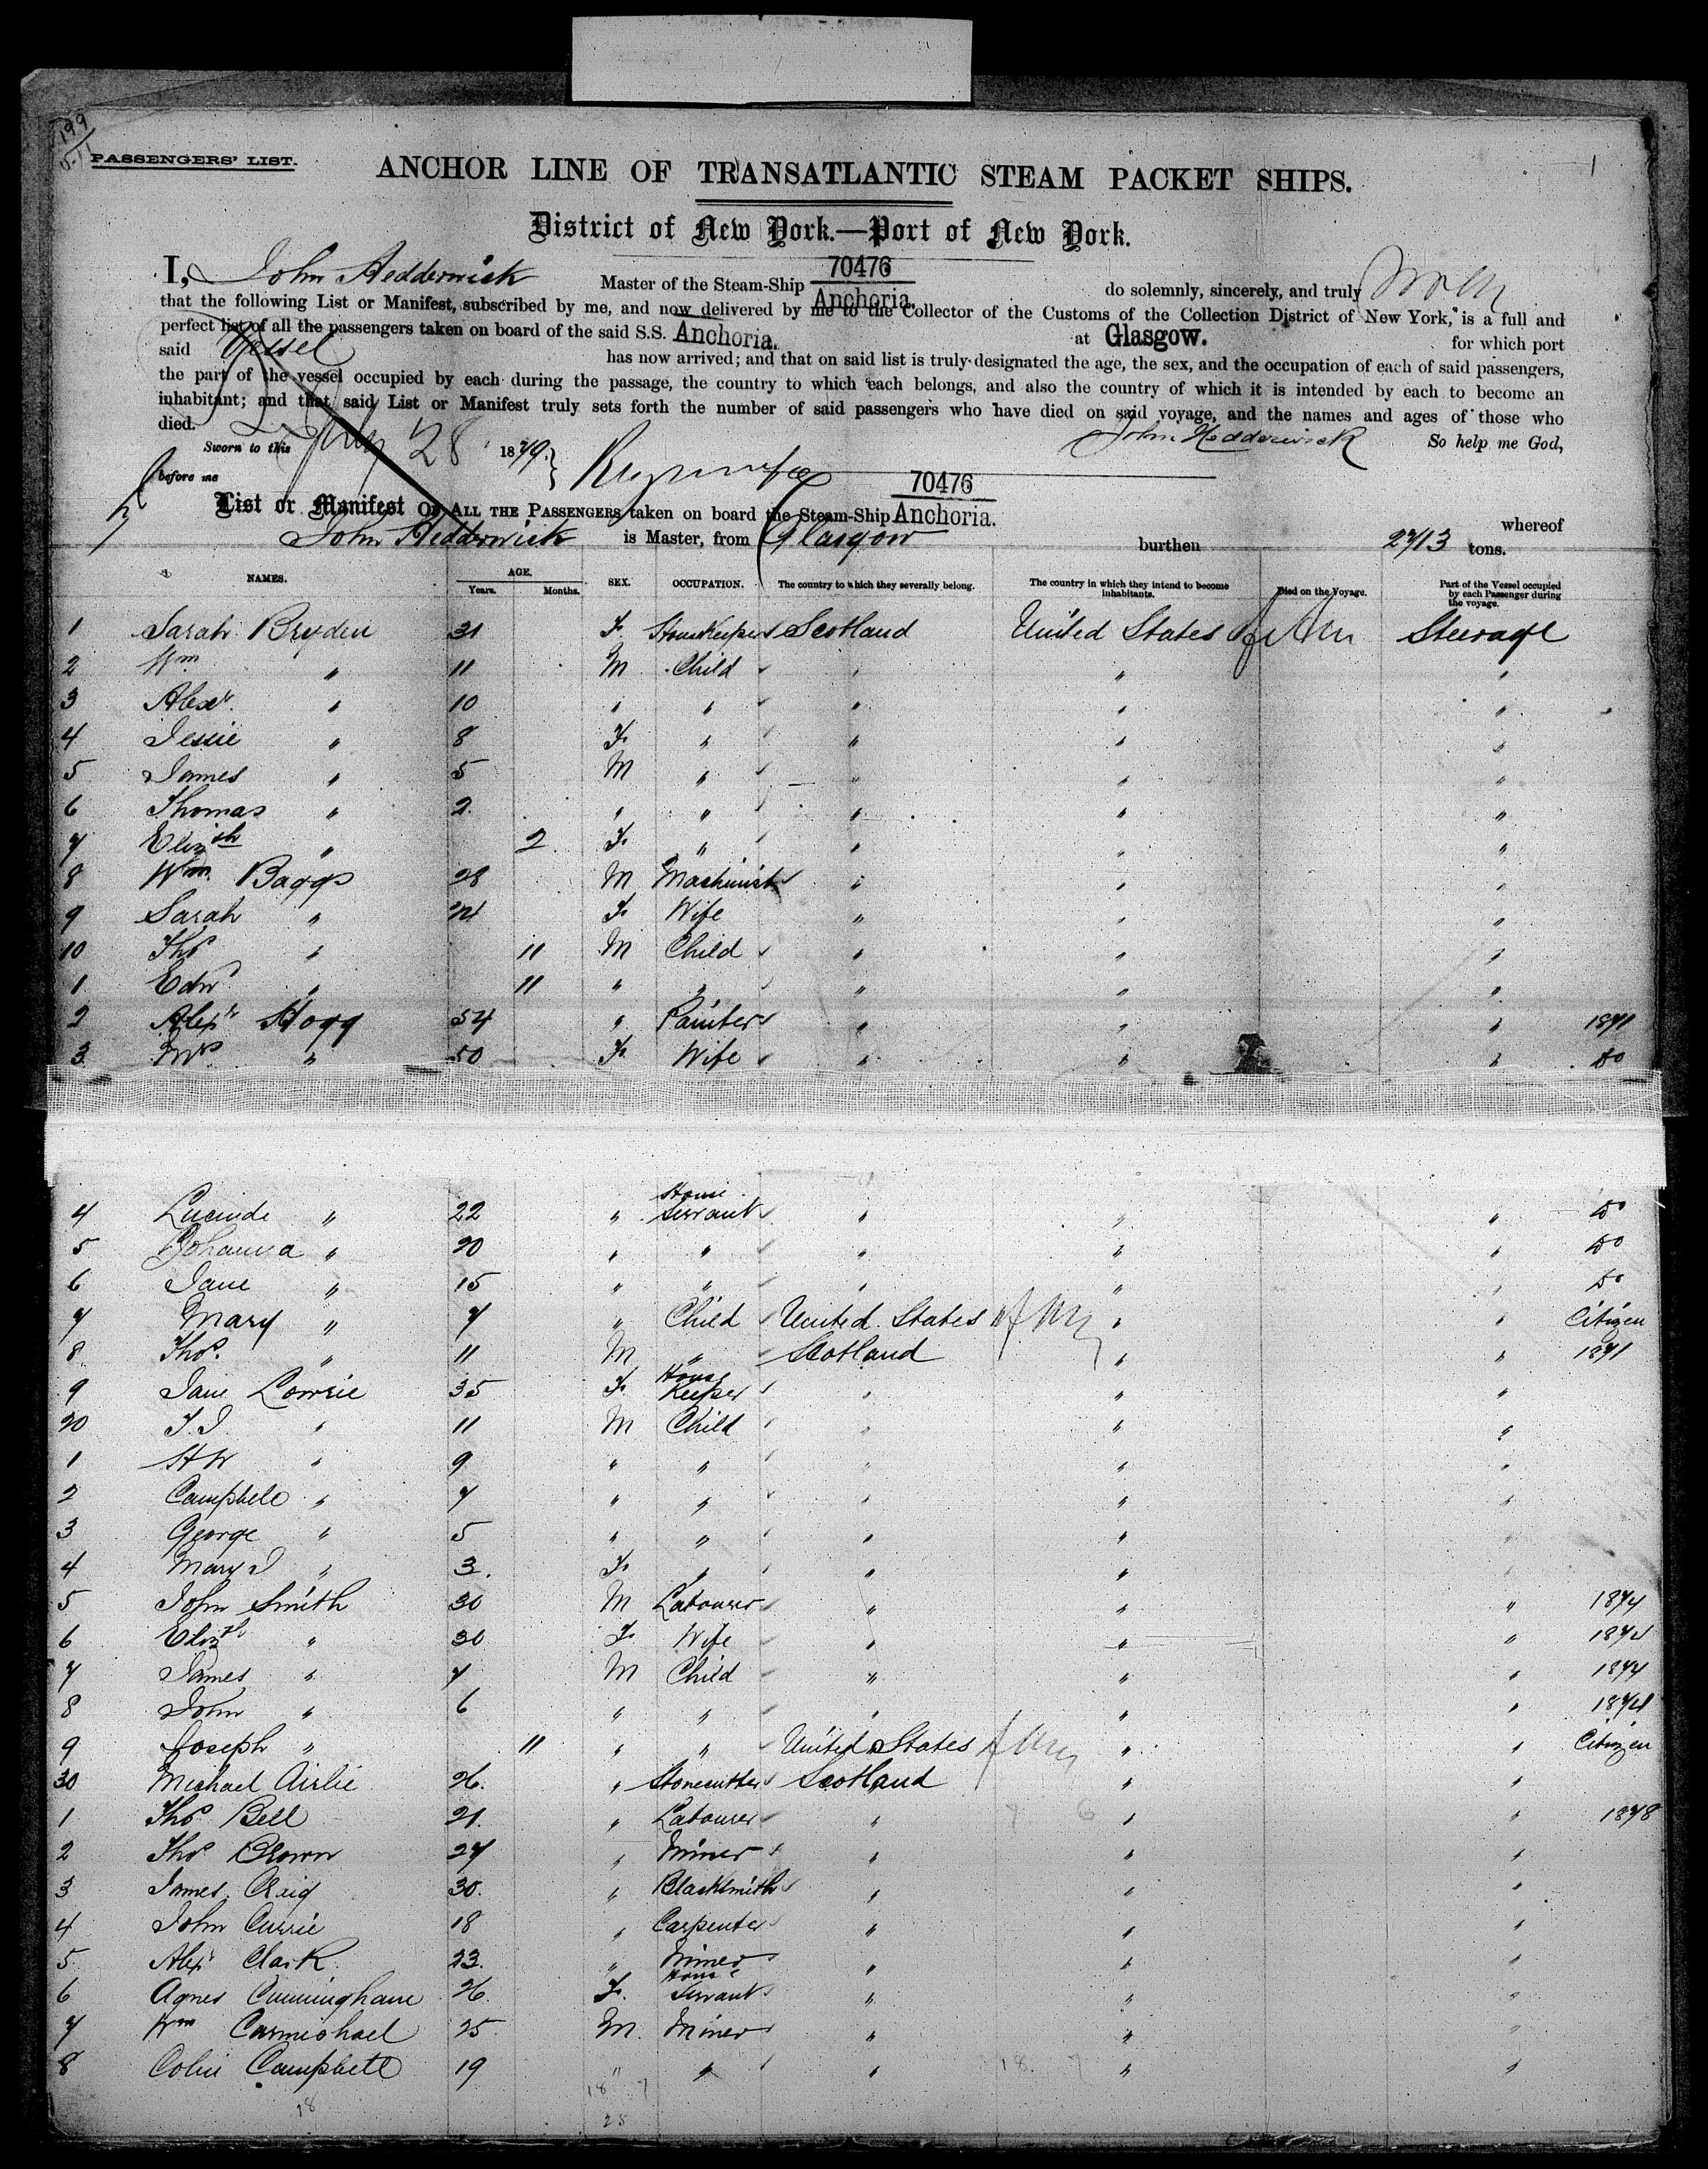 199
PASSENGERS' LIST.
1
ANCHOR LINE OF TRANSATLANTIC STEAM PACKET SHIPS.
District of New York.—Port of New York.
I, John Hedderwick Master of the Steam-Ship 70476 Anchoria. do solemnly, sincerely, and truly
that the following List or Manifest, subscribed by me, and now delivered by me to the Collector of the Customs of the Collection District of New York, is a full and
perfect list of all the passengers taken on board of the said S.S. Anchoria. at Glasgow. for which port
said Vessel has now arrived; and that on said list is truly designated the age, the sex, and the occupation of each of said passengers,
the part of the vessel occupied by each during the passage, the country to which each belongs, and also the country of which it is intended by each to become an
inhabitant; and that said List or Manifest truly sets forth the number of said passengers who have died on said voyage, and the names and ages of those who
died. John Hedderwick So help me God,
Sworn to this July 28 1879.
before me
List or Manifest OF ALL THE PASSENGERS taken on board the Steam-Ship 70476 Anchoria. whereof
John Hedderwick is Master, from Glasgow burthen 2713 tons.
NAMES. AGE. Years. Months. SEX. OCCUPATION. The country to which they severally belong. The country in which they intend to become inhabitants. Died on the Voyage. Part of the Vessel occupied by each Passenger during the voyage.
1 Sarah Bryden 31 F. HouseKeeper Scotland United States Steerage
2 Wm " 11 M Child " " "
3 Alexr. " 10 " " " " "
4 Jessie " 8 F. " " " "
5 James " 5 M " " " "
6 Thomas " 2 " " " " "
7 Elizth " 2 F. " " " "
8 Wm Baggs 28 M Machinist " " "
9 Sarah " 24 F. Wife " " "
10 Thos " 11 M Child " " "
1 Edwd " 11 " " " " "
2 Alexr Hogg 54 " Painter " " " 1871
3 Mrs " 50 F. Wife " " " Do
4 Lucinde " 22 " House Servant " " " Do
5 Johanna " 20 " " " " " Do
6 Jane " 15 " " " " " Do
7 Mary " 7 " Child United States " " Citizen
8 Thos. " 11 M " Scotland " " 1871
9 Jane Lowrie 35 F. House Keeper " " "
20 J. J. " 11 M Child " " "
1 HW " 9 " " " " "
2 Campbell " 7 " " " " "
3 George " 5 " " " " "
4 Mary J " 3. F. " " " "
5 John Smith 30 M Labourer " " " 1874
6 Elizth " 30 F. Wife " " " 1874
7 James " 7 M Child " " " 1874
8 John " 6 " " " " " 1874
9 Joseph " 11 " " United States " " Citizen
30 Michael Airlie 26. " Stonecutter Scotland " "
1 Thos Bell 21. " Labourer " " " 1878
2 Thos Brown 27 " Miner " " "
3 James Craig 30. " Blacksmith " " "
4 John Currie 18 " Carpenter " " "
5 Alexr Clark 23. " Miner " " "
6 Agnes Cunningham 26. F. House Servant " " "
7 Wm Carmichael 25 M. Miner " " "
8 Colin Campbell 19 " " " " "
18 7
25